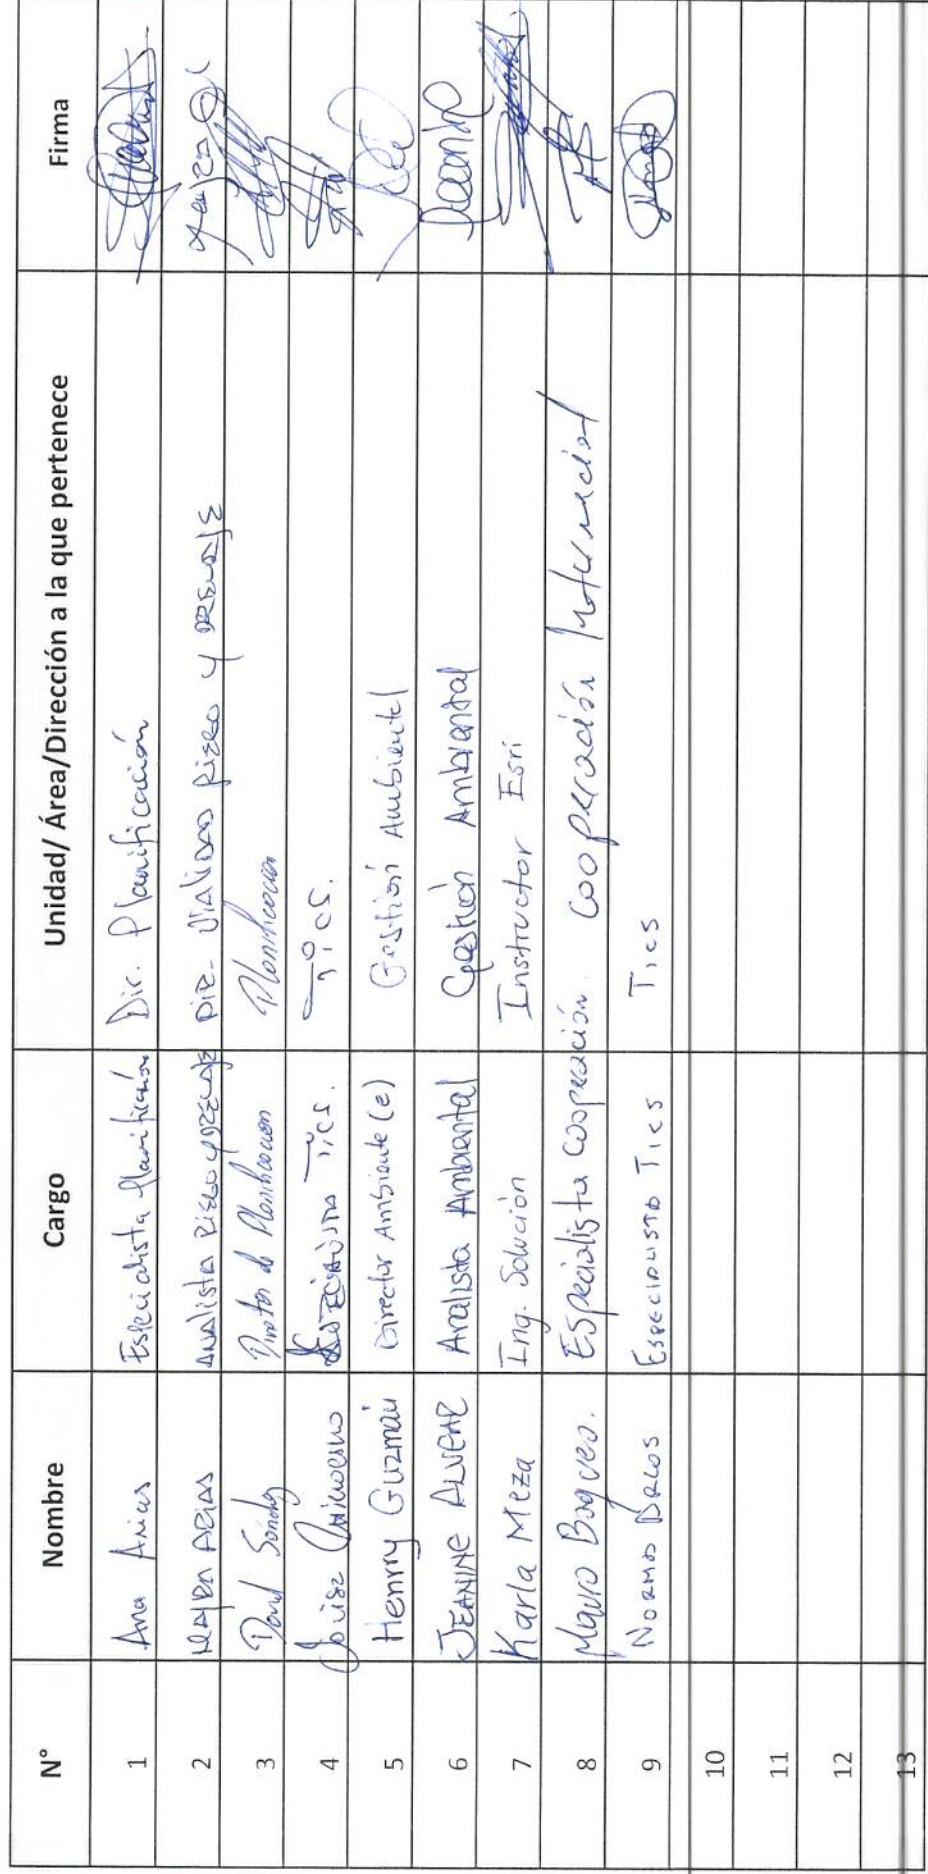 N° Nombre Cargo Unidad/ Área/Dirección a la que pertenece Firma
1 Ana Arias Especialista Planificación Dir. Planificación
2 MAYRA ARIAS ANALISTA RIEGO Y DRENAJE DIR. VIALIDAD RIEGO Y DRENAJE
3 David Sánchez Director de Planificación Planificación
4 Tics. Tics.
5 Henrry Guzmán Director Ambiente (e) Gestión Ambiental
6 JEANINE ALVEAR Analista Ambiental Gestión Ambiental
7 Karla Meza Ing. Solución Instructor Esri
8 Mauro Especialista Cooperación. Cooperación Internacional
9 Especialista Tics Tics
10
11
12
13